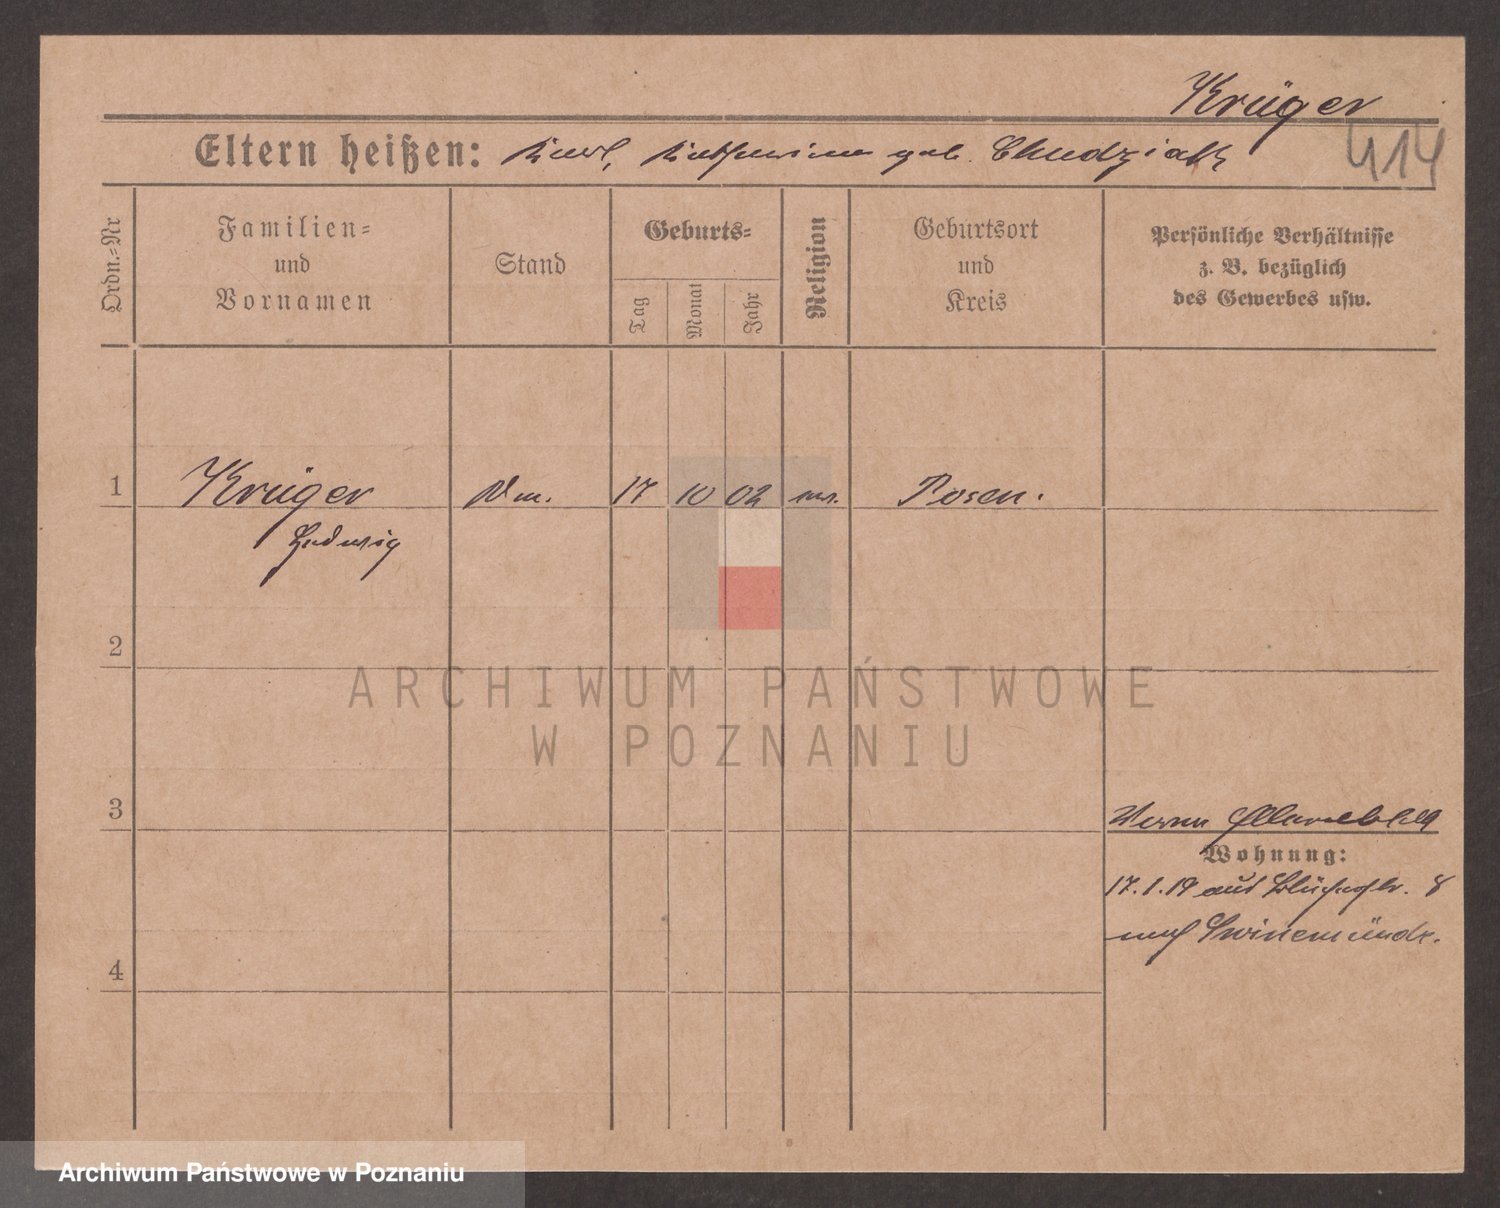 Krüger
Eltern heißen: Karl, Katharina geb. Chudziak
414
Ordn.-Nr
Familien-
und
Vornamen
Stand
Geburts-
Tag
Monat
Jahr
Religion
Geburtsort
und
Kreis
Persönliche Verhältnisse
z. B. bezüglich
des Gewerbes usw.
1
Krüger
17
10
02
Posen.
Hedwig
2
ARCHIWUM PAŃSTWOWE
W POZNANIU
3
4
Wohnung:
17.1.19 aus Blücherstr. 8
nach Swinemünde.
Archiwum Państwowe w Poznaniu